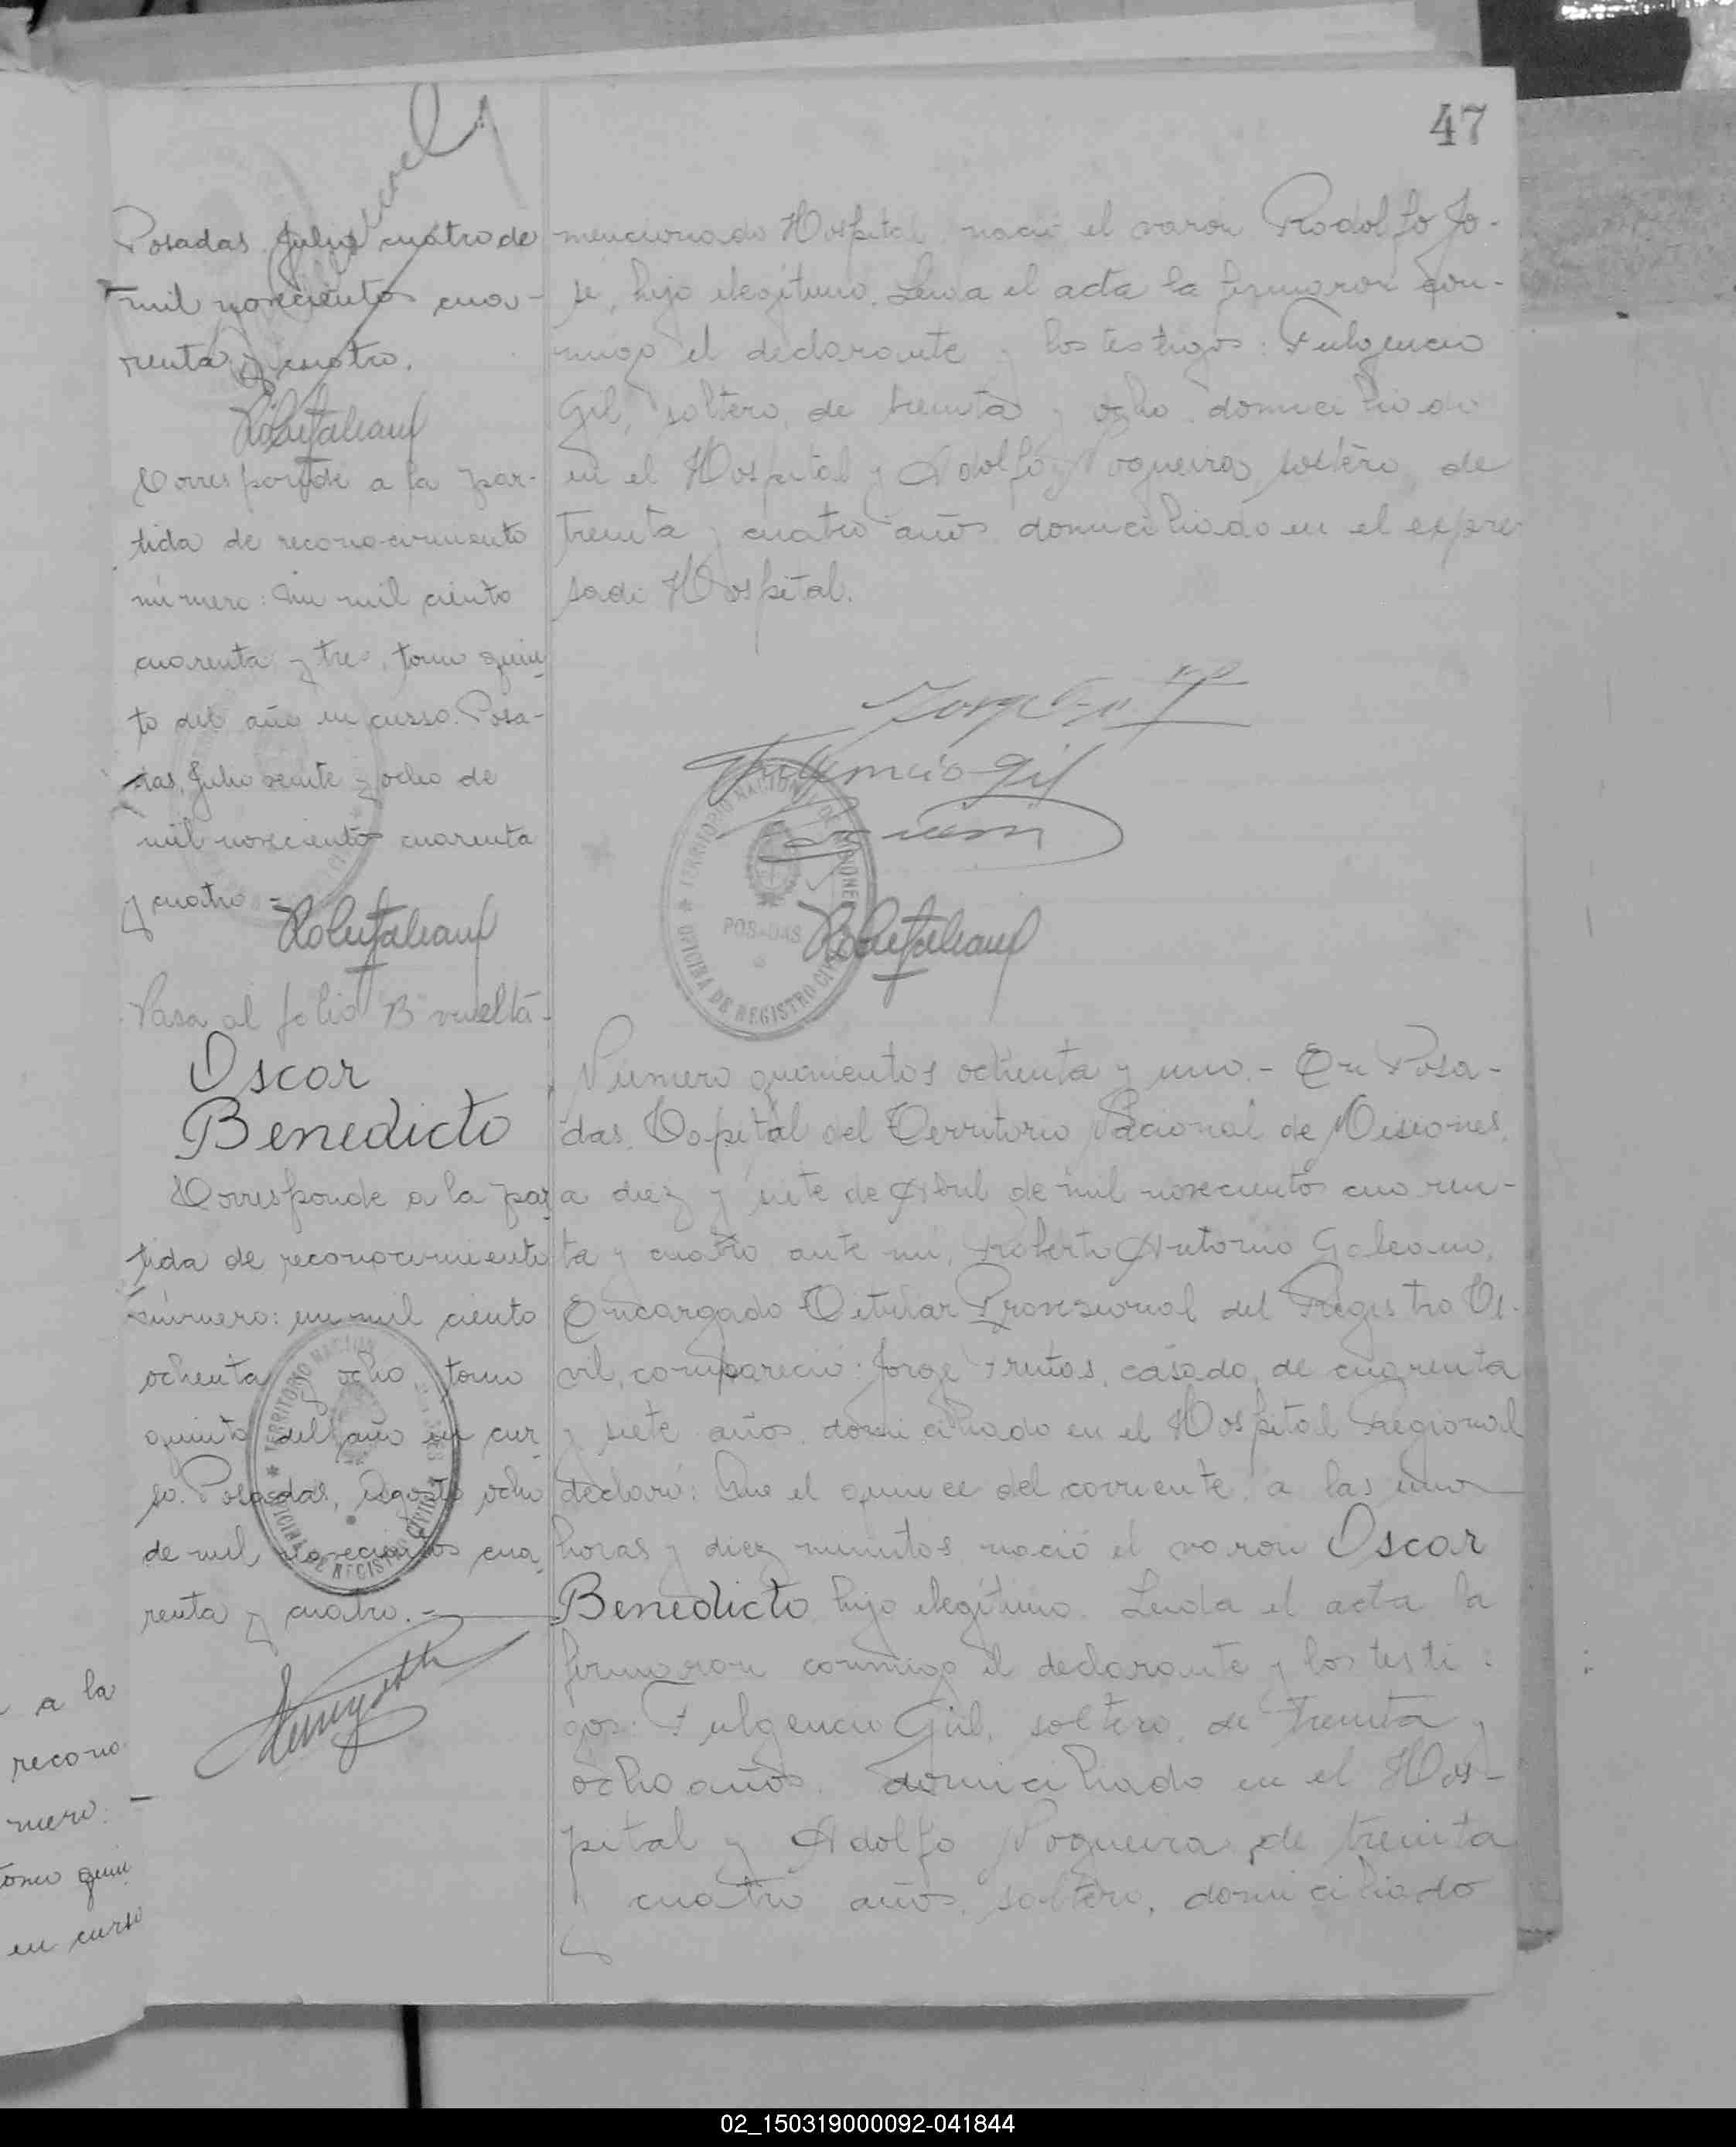 47
Posadas, Julio cuatro de
mil novecientos cua-
renta y cuatro.
Corresponde a la par-
tida de reconocimiento
número: Un mil ciento
cuarenta y tres, tomo quin
to del año en curso. Posa-
das, Julio veinte y ocho de
mil novecientos cuarenta
y cuatro -
Pasa al folio vuelta-
Oscar
Benedicto
Corresponde a la par
tida de reconocimiento
número: un mil ciento
ochenta y ocho tomo
quinto del año en cur
so. Posadas, Agosto ocho
de mil novecientos cua
renta y cuatro.-
mencionado Hospital nació el varón Rodolfo Jo-
sé, hijo ilegítimo. Leida el acta la firmaron con-
migo el declarante y los testigos: Fulgencio
Gil, soltero, de treinta y ocho domiciliado
en el Hospital y Adolfo Nogueira, soltero, de
treinta y cuatro años domiciliado en el expre
sado Hospital.
Fulgencio Gil
TERRITORIO NACIONAL DE MISIONES
POSADAS
OFICINA DE REGISTRO CIVIL
Número quinientos ochenta y uno.- En Posa-
das, Capital del Territorio Nacional de Misiones,
a diez y siete de Abril de mil novecientos cuaren-
ta y cuatro, ante mi, Roberto Antonio Galeano,
Encargado Titular Provisional del Registro Ci-
vil, compareció: Jorge Frutos, casado, de cuarenta
y siete años, domiciliado en el Hospital Regional
declaró: Que el quince del corriente a las una
horas y diez minutos nació el varon Oscar
Benedicto hijo ilegítimo. Leida el acta la
firmaron conmigo el declarante y los testi-
gos: Fulgencio Gil, soltero, de treinta y
ocho años, domiciliado en el Hos-
pital y Adolfo Nogueira, de treinta
y cuatro años, soltero, domiciliado
TERRITORIO NACIONAL
OFICINA DE REGISTRO CIVIL
a la
recono
mero:
tomo quin
en curso
02_150319000092-041844